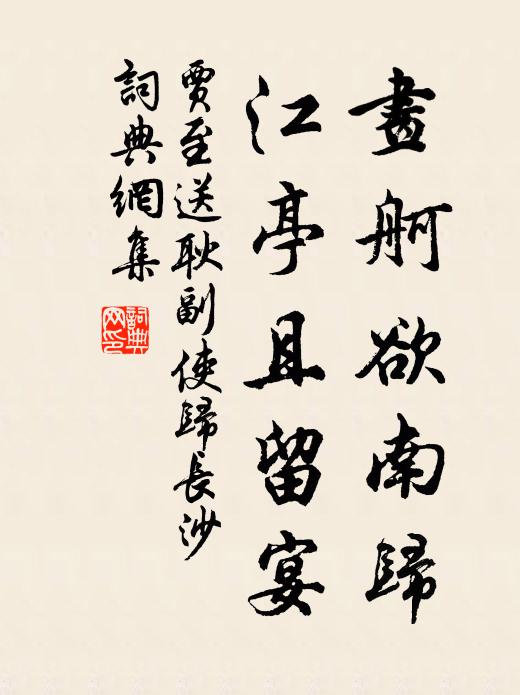 畫舸欲南歸
江亭且留宴
賈至送耿副使歸長沙
詞典網集
詞典网印